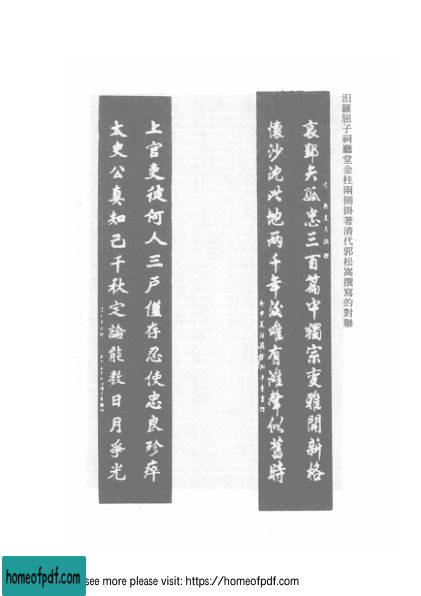 汨羅屈子祠廳堂金柱兩側掛著清代郭松嵩撰寫的對聯
哀郢矢孤忠三百篇中獨宗變雅開新格
懷沙沈此地兩千年後唯有灘聲似舊時
上官吏彼何人三戶僅存忍使忠良殄瘁
太史公真知己千秋定論能教日月爭光
homeofpdf.com
see more please visit: https://homeofpdf.com